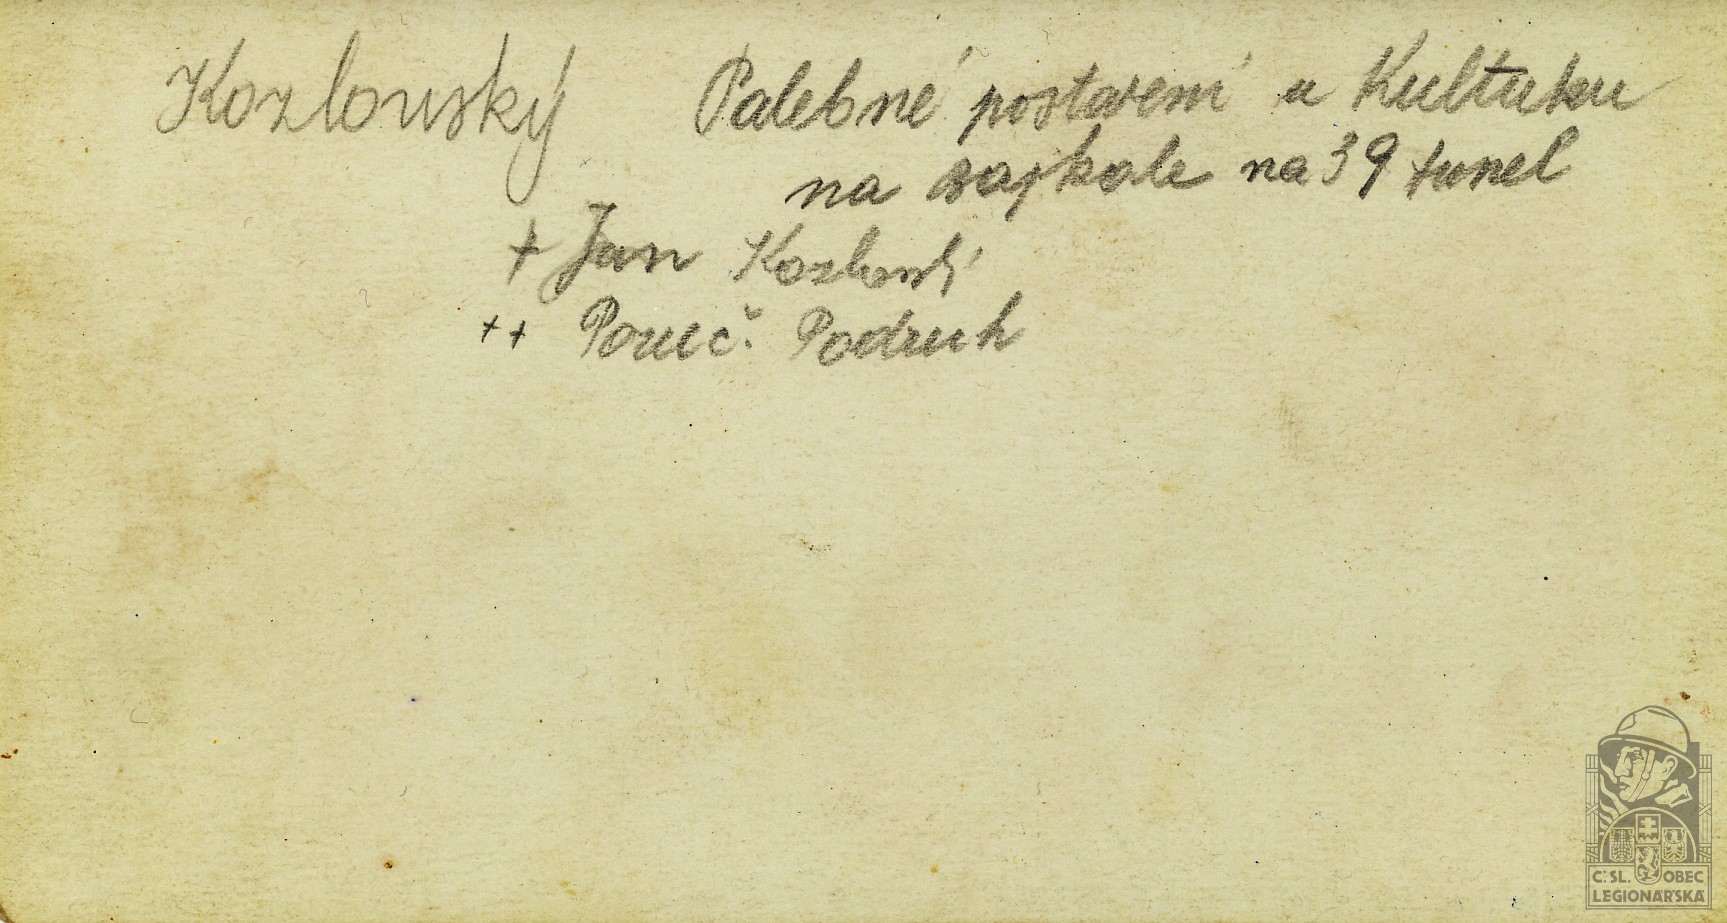 Kozlouský Palebné postavení u Kultuku
na Bajkale na 39 tunel
+ Jan
++ Poruč. Podruh
Č.SL. OBEC
LEGIONÁŘSKÁ